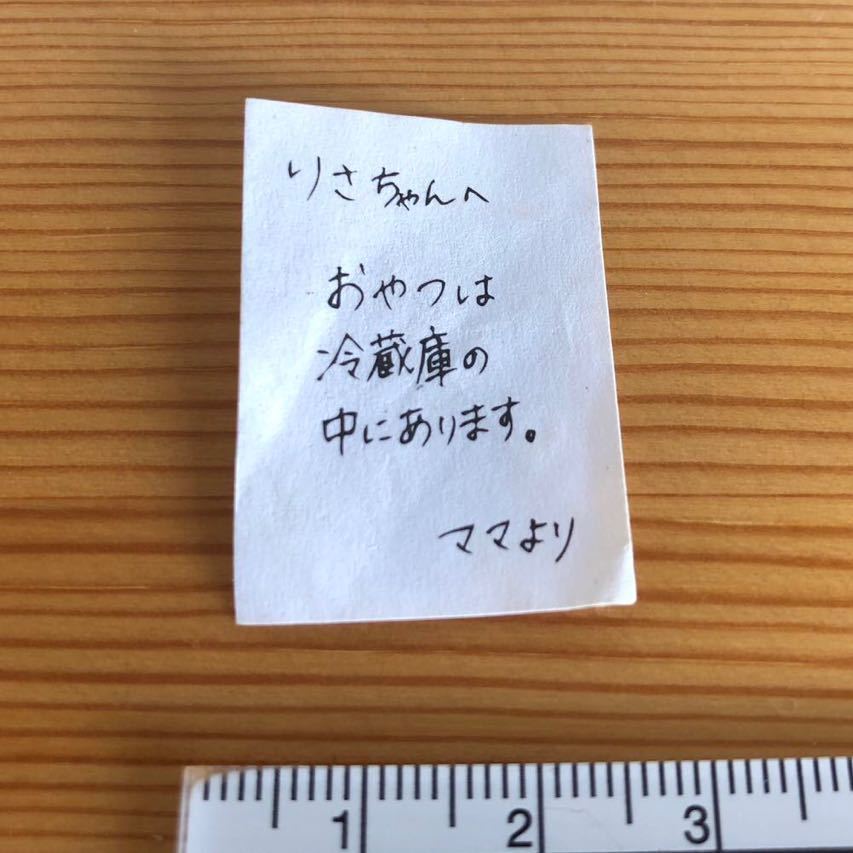 りさちゃんへ
おやつは
冷蔵庫の
中にあります。
ママより
1 2 3